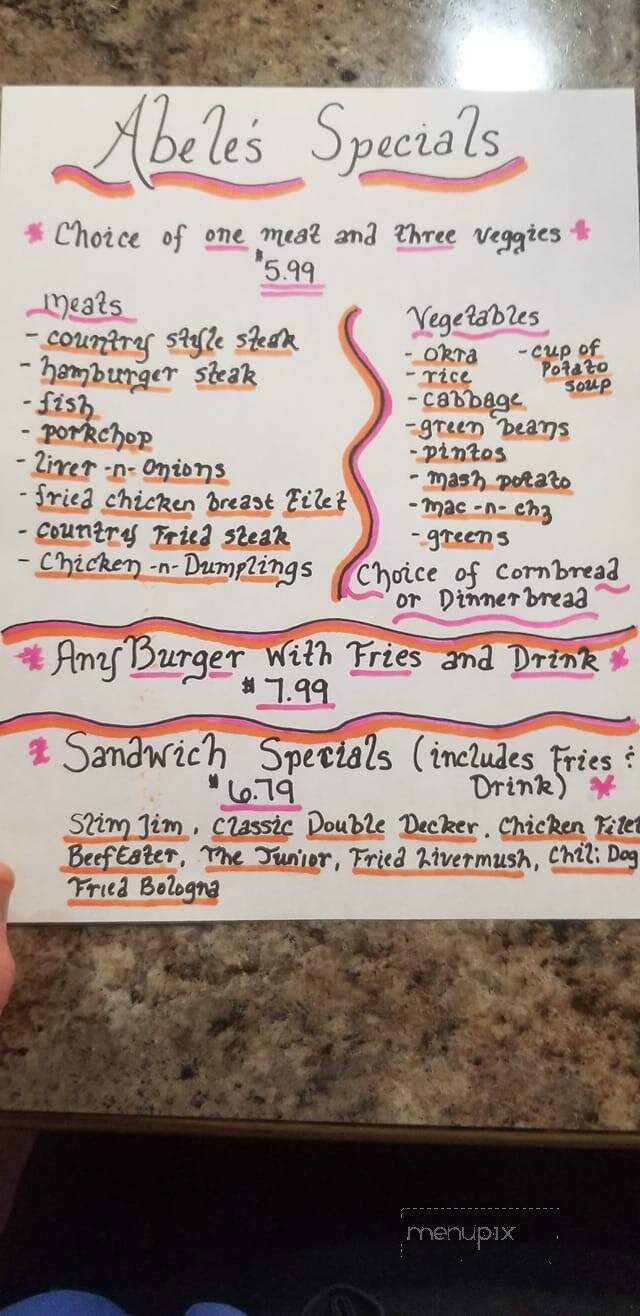 Abele's Specials
* Choice of one meat and three veggies *
$5.99
Meats
- country style steak
- hamburger steak
- fish
- porkchop
- Liver -n- Onions
- fried chicken breast Filet
- country Fried steak
- Chicken -n- Dumplings
Vegetables
- okra
- rice
- cabbage
- green beans
- pintos
- mash potato
- mac -n- chz
- greens
- cup of
Potato
soup
Choice of Cornbread
or Dinnerbread
* Any Burger with Fries and Drink *
$7.99
* Sandwich Specials (includes Fries &
$6.79 Drink) *
Slim Jim, Classic Double Decker, Chicken Filet
Beef Eater, The Junior, Fried Livermush, Chili Dog
Fried Bologna
menupix